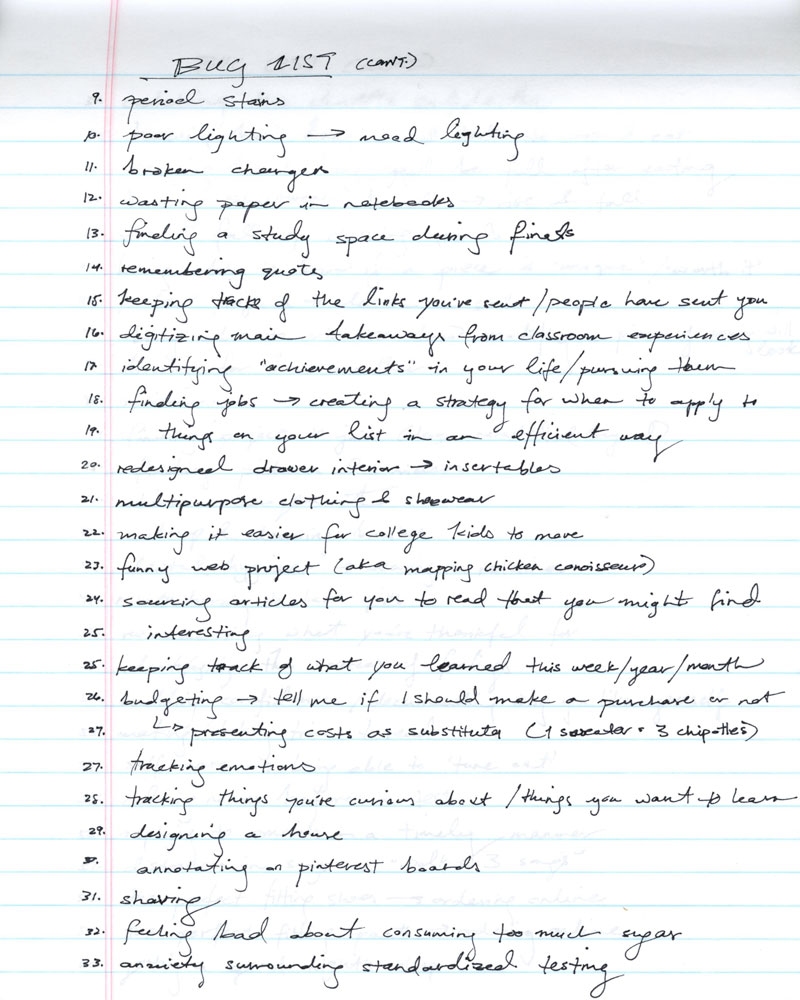 BUG LIST (CONT.)
9. period stains
10. poor lighting → mood lighting
11. broken charger
12. wasting paper in notebooks
13. finding a study space during finals
14. remembering quotes
15. keeping track of the links you've sent/people have sent you
16. digitizing main takeaways from classroom experiences
17. identifying "achievements" in your life/pursuing them
18. finding jobs → creating a strategy for when to apply to
19. things on your list in an efficient way
20. redesigned drawer interior → insertables
21. multipurpose clothing & shoewear
22. making it easier for college kids to move
23. funny web project (aka mapping chicken conoisseurs)
24. sourcing articles for you to read that you might find
25. interesting
25. keeping track of what you learned this week/year/month
26. budgeting → tell me if I should make a purchase or not
27. ↳ presenting costs as substitute (1 sweater = 3 chipotles)
27. tracking emotions
28. tracking things you're curious about/things you want to learn
29. designing a house
30. annotating on pinterest boards
31. shaving
32. feeling bad about consuming too much sugar
33. anxiety surrounding standardized testing